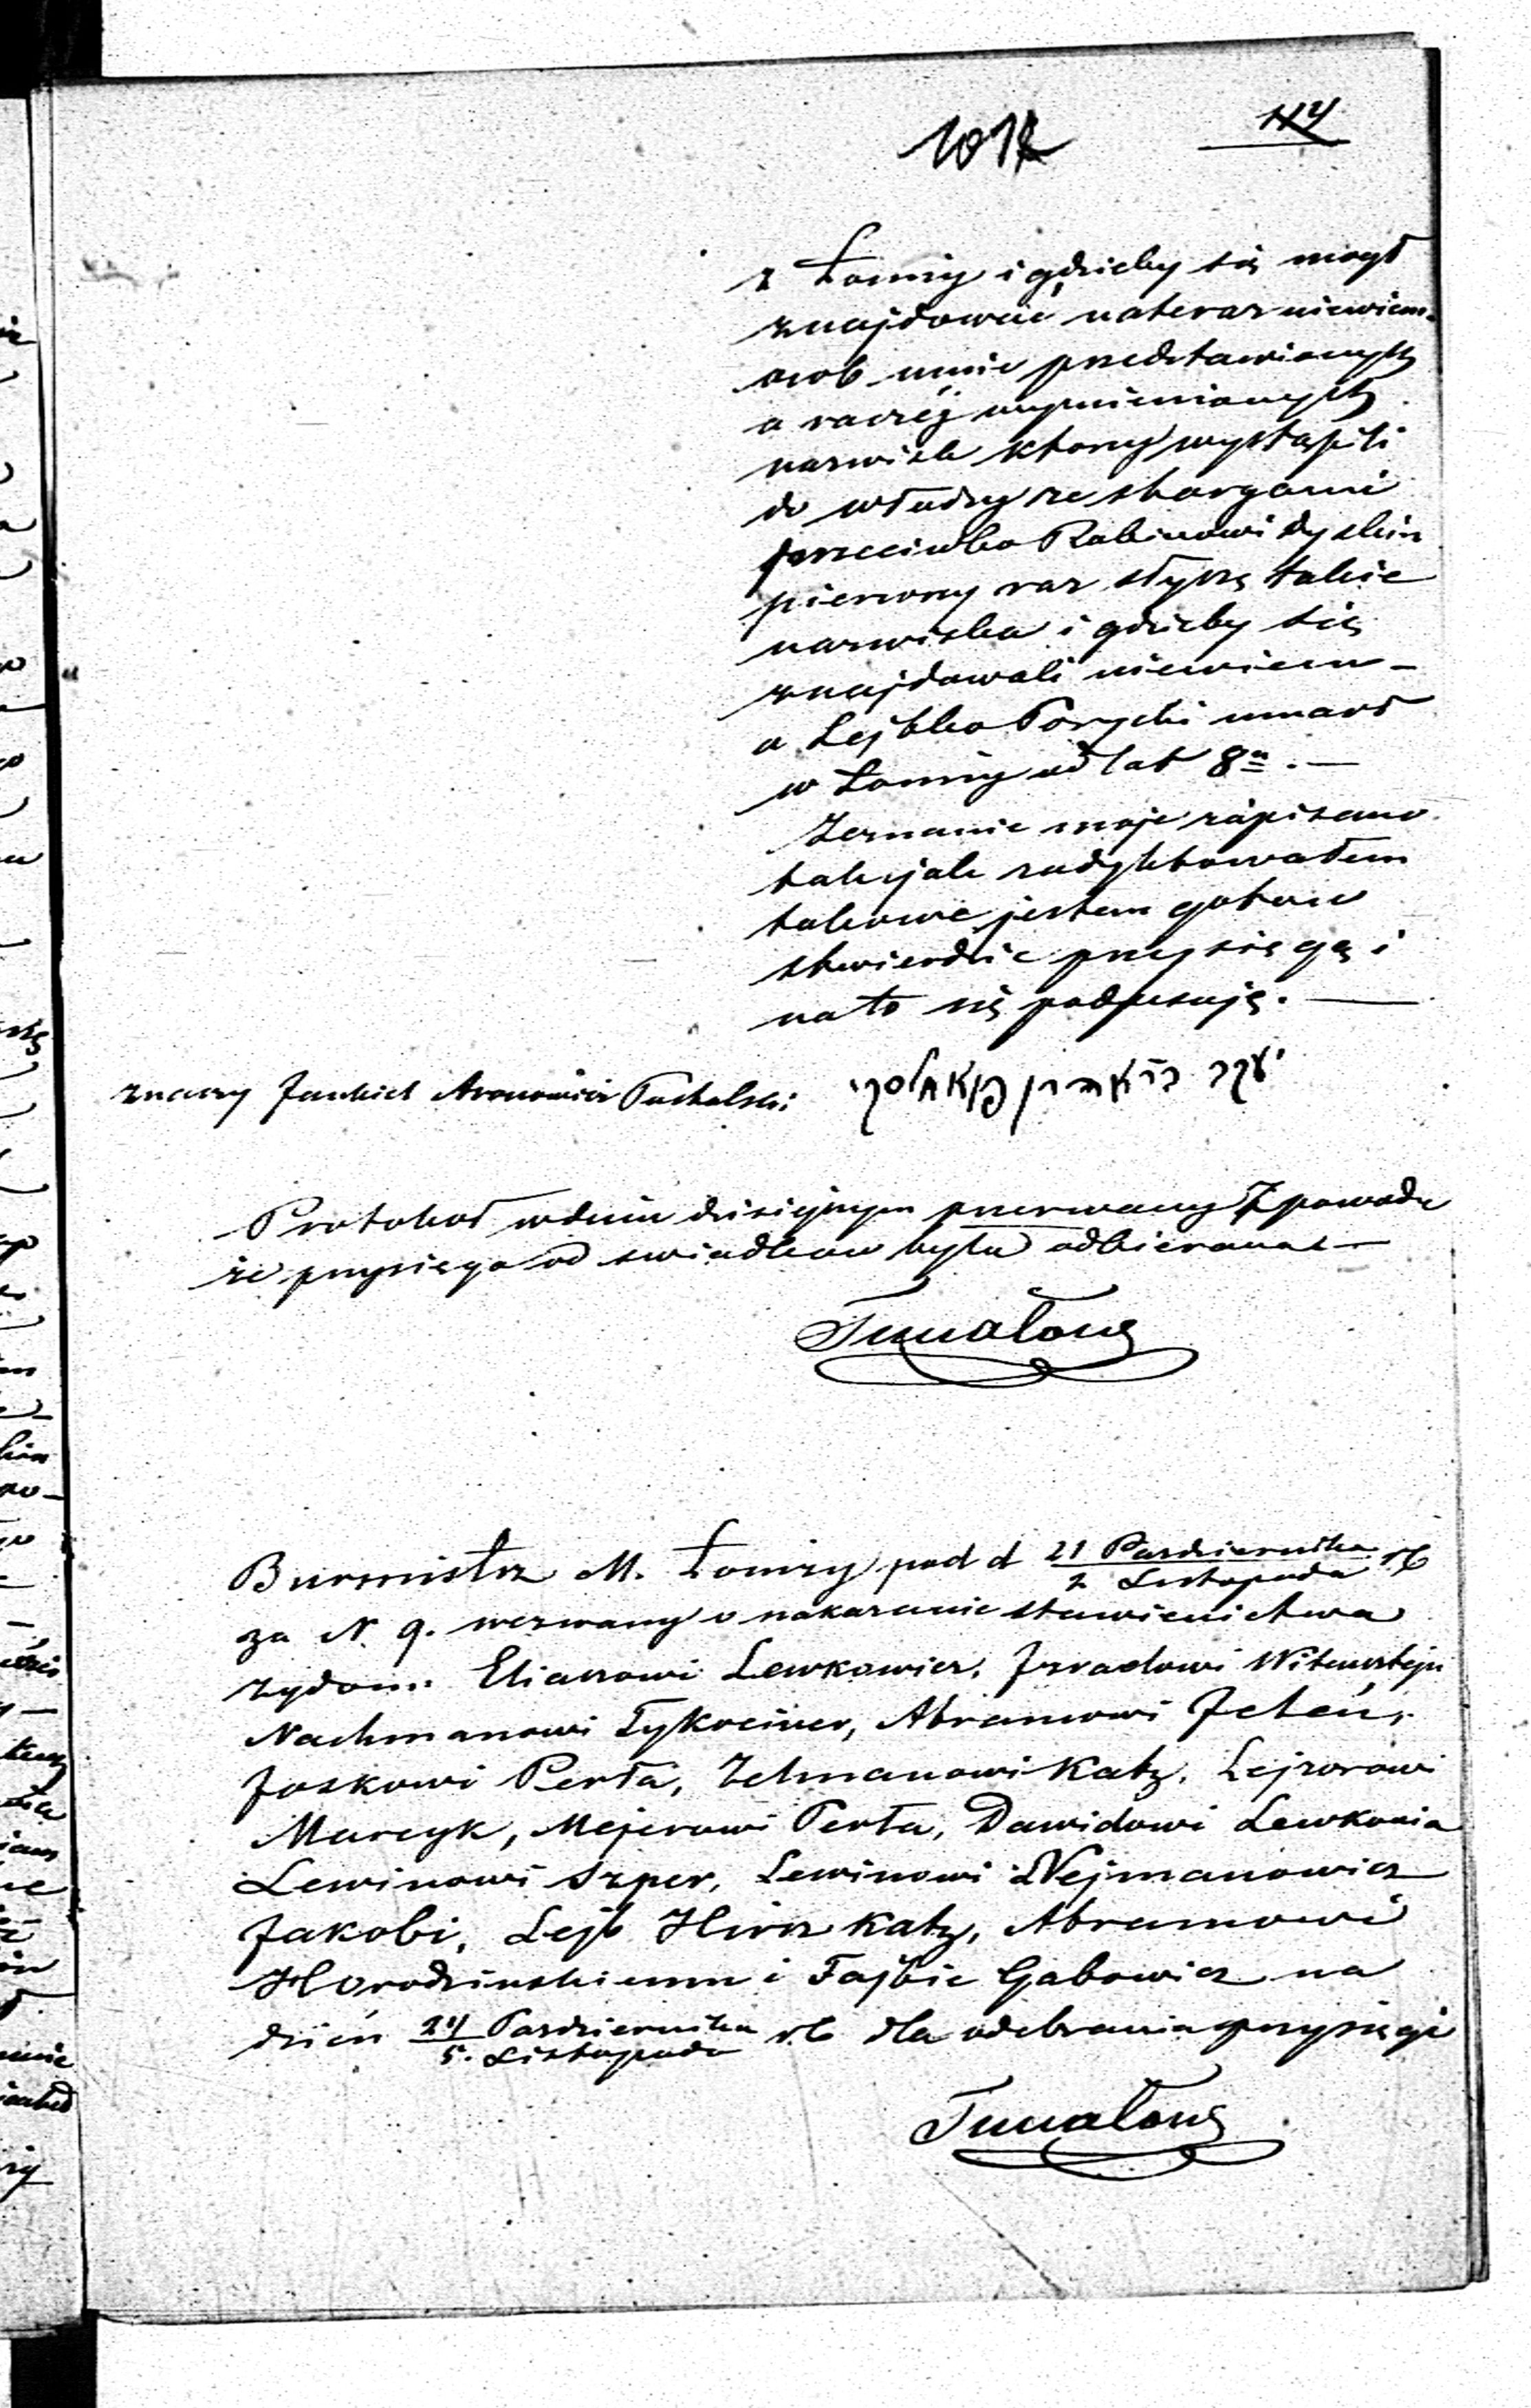 114
z Łomży i gdzieby się mógł
znajdować nateraz niewiem.
osob mnie przedstawionych
a raczéj wymienionych
nazwisk ktorzy wystąpili
do władzy ze skargami
przeciwko Rabinowi Dyskin
pierwszy raz słyszę takie
nazwiska i gdzieby się
znajdowali niewiem –
a Lejbko Porycki umarł
w Łomży od lat 8u. —
Zeznanie moje zapisano
tak jak zadyktowałem
takowe jestem gotow
stwierdzic przysięgą i
na to się podpisuję. —
znaczy Jankiel Aronowicz Puchalski יעקב
Protokoł w dniu dzisiejszym przerwany z powodu
że przysięga od swiadkow była odbierana —
Burmistrz M. Łomzy pod d 21 Pazdziernika / 2 Listopada rb
za N. 9. wezwany o nakazanie stawiennictwa
zydom: Eliaszowi Lewkowicz, Izraelowi Witensztejn
Nachmanowi Tykociner, Abramowi Jeleń,
Joskowi Perła, Zelmanowi Katz, Lejzorowi
Murcyk, Mejerowi Perła, Dawidowi Lewkowicz
Lewinowi Szper, Lewinowi Nejmanowicz
Jakobi, Lejb Hirsz Katz, Abramowi
Horodzinskiemu i Fajbie Gabowicz na
dzień 24 Pazdziernika / 5. Listopada rb dla odebrania przysięgi